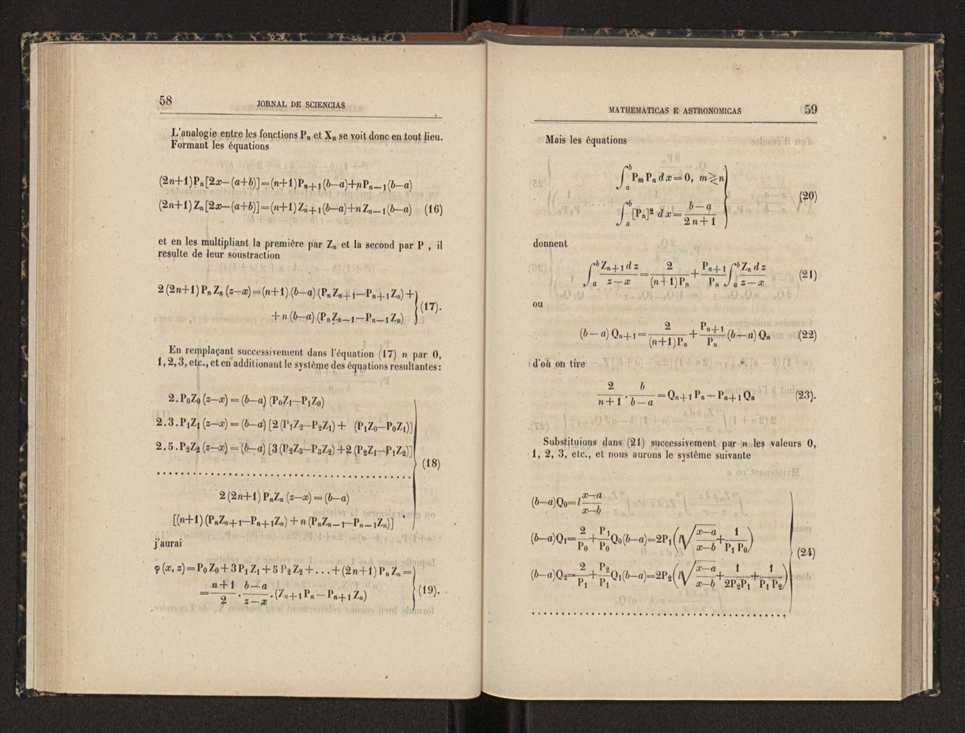 58 JORNAL DE SCIENCIAS
L'analogie entre les fonctions Pₙ et Xₙ se voit donc en tout lieu.
Formant les équations
(2n+1)Pₙ[2x−(a+b)]=(n+1)Pₙ₊₁(b−a)+nPₙ₋₁(b−a)
(2n+1)Zₙ[2x−(a+b)]=(n+1)Zₙ₊₁(b−a)+nZₙ₋₁(b−a) (16)
et en les multipliant la première par Zₙ et la second par P , il
resulte de leur soustraction
2(2n+1)PₙZₙ(z−x)=(n+1)(b−a)(PₙZₙ₊₁−Pₙ₊₁Zₙ)+
+n(b−a)(PₙZₙ₋₁−Pₙ₋₁Zₙ) } (17).
En remplaçant successivement dans l'équation (17) n par 0,
1, 2, 3, etc., et en additionant le système des équations resultantes:
2.P₀Z₀(z−x)=(b−a)(P₀Z₁−P₁Z₀)
2.3.P₁Z₁(z−x)=(b−a)[2(P₁Z₂−P₂Z₁)+ (P₁Z₀−P₀Z₁)]
2.5.P₂Z₂(z−x)=(b−a)[3(P₂Z₃−P₃Z₂)+2(P₂Z₁−P₁Z₂)]
. . . . . . . . . . . . . . . . . . . . . . . . . . . . . . } (18)
2(2n+1)PₙZₙ(z−x)=(b−a)
[(n+1)(PₙZₙ₊₁−Pₙ₊₁Zₙ)+n(PₙZₙ₋₁−Pₙ₋₁Zₙ)]
j'aurai
φ(x, z)=P₀Z₀+3P₁Z₁+5P₂Z₂+...+(2n+1)PₙZₙ=
=(n+1)/2 . (b−a)/(z−x) . (Zₙ₊₁Pₙ−Pₙ₊₁Zₙ) } (19).
MATHEMATICAS E ASTRONOMICAS 59
Mais les équations
∫ₐᵇ PₘPₙ dx=0, m≷n
∫ₐᵇ [Pₙ]² dx=(b−a)/(2n+1) } (20)
donnent
∫ₐᵇ Zₙ₊₁dz/(z−x)=2/((n+1)Pₙ)+Pₙ₊₁/Pₙ ∫ₐᵇ Zₙdz/(z−x) (21)
ou
(b−a)Qₙ₊₁=2/((n+1)Pₙ)+Pₙ₊₁/Pₙ (b−a)Qₙ (22)
d'où on tire
2/(n+1) . b/(b−a)=Qₙ₊₁Pₙ−Pₙ₊₁Qₙ (23).
Substituions dans (21) successivement par n les valeurs 0,
1, 2, 3, etc., et nous aurons le système suivante
(b−a)Q₀=l (x−a)/(x−b)
(b−a)Q₁=2/P₀+P₁/P₀ Q₀(b−a)=2P₁(l√((x−a)/(x−b))+1/(P₁P₀))
(b−a)Q₂=2/P₁+P₂/P₁ Q₁(b−a)=2P₂(l√((x−a)/(x−b))+1/(2P₂P₁)+1/(P₁P₂)) } (24)
. . . . . . . . . . . . . . . . . . . . . . . . . . . . . .